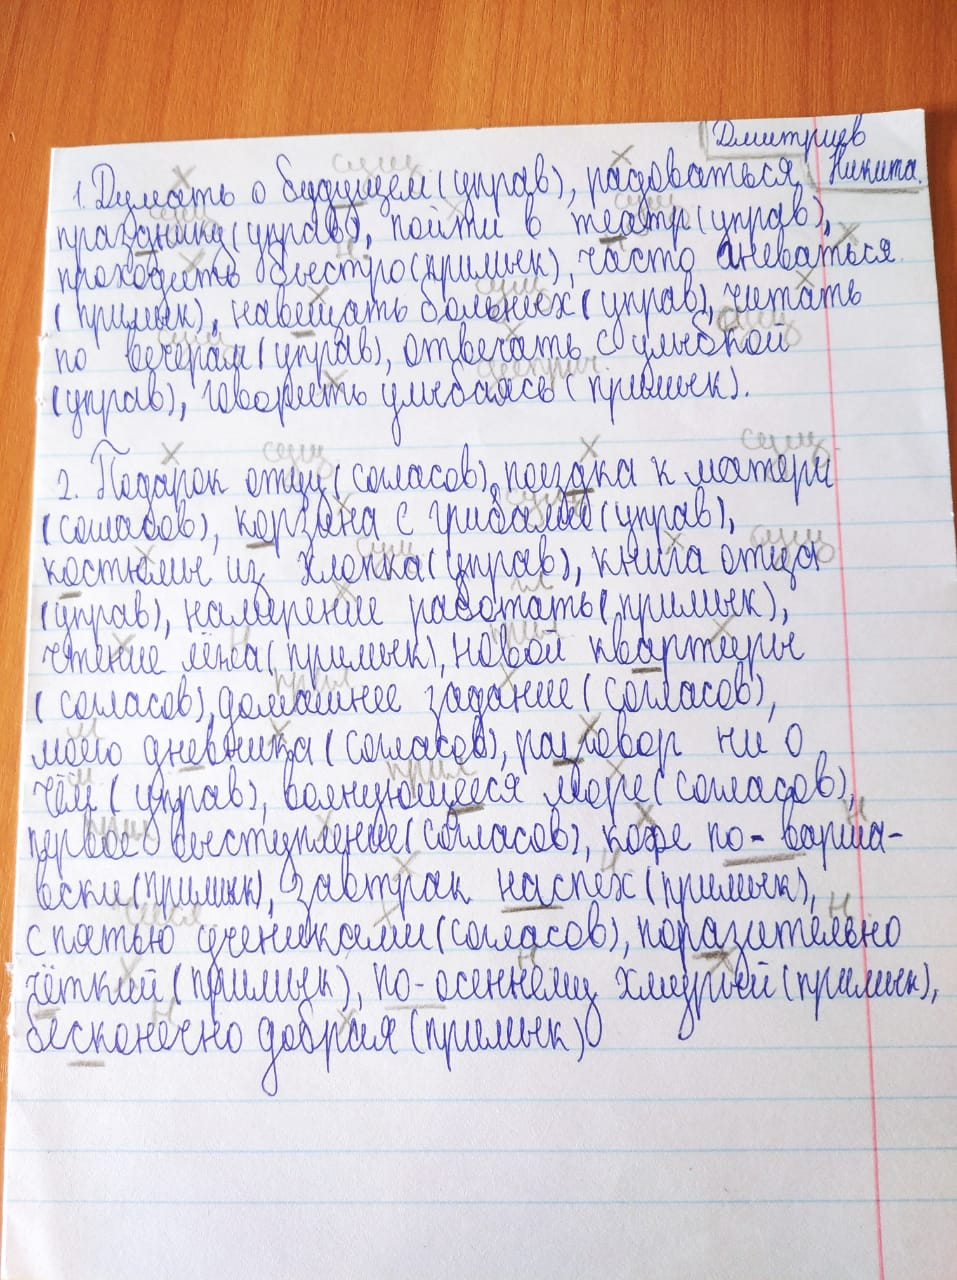 Дмитриев
Никита.
1. Думать о будущем (управ), радоваться
празднику (управ), пойти в театр (управ),
проходить быстро (примык), часто аневаться
(примык), навещать больных (управ), читать
по вечерам (управ), отвечать с улыбкой
(управ), говорить улыбаясь (примык).
2. Подарок отцу (согласов), поездка к матери
(согласов), корзина с грибами (управ),
костюмы из хлопка (управ), книга отца
(управ), намерение работать (примык),
чтение лёжа (примык), новой квартиры
(согласов), домашнее задание (согласов),
моего дневника (согласов), разговор ни о
чём (управ), волнующееся море (согласов),
первое выступление (согласов), кофе по-варша-
вски (примык), завтрак наспех (примык),
с пятью учениками (согласов), поразительно
чёткий (примык), по-осеннему хмурый (примык),
бесконечно добрая (примык)